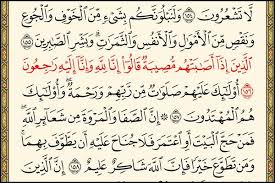 لَّا تَشْعُرُونَ ١٥٤ وَلَنَبْلُوَنَّكُم بِشَىْءٍ مِّنَ ٱلْخَوْفِ وَٱلْجُوعِ
وَنَقْصٍ مِّنَ ٱلْأَمْوَٰلِ وَٱلْأَنفُسِ وَٱلثَّمَرَٰتِ ۗ وَبَشِّرِ ٱلصَّٰبِرِينَ ١٥٥
ٱلَّذِينَ إِذَآ أَصَٰبَتْهُم مُّصِيبَةٌ قَالُوٓا۟ إِنَّا لِلَّهِ وَإِنَّآ إِلَيْهِ رَٰجِعُونَ
١٥٦ أُو۟لَٰٓئِكَ عَلَيْهِمْ صَلَوَٰتٌ مِّن رَّبِّهِمْ وَرَحْمَةٌ ۖ وَأُو۟لَٰٓئِكَ
هُمُ ٱلْمُهْتَدُونَ ١٥٧ ۞ إِنَّ ٱلصَّفَا وَٱلْمَرْوَةَ مِن شَعَآئِرِ ٱللَّهِ ۖ
فَمَنْ حَجَّ ٱلْبَيْتَ أَوِ ٱعْتَمَرَ فَلَا جُنَاحَ عَلَيْهِ أَن يَطَّوَّفَ بِهِمَا ۚ
وَمَن تَطَوَّعَ خَيْرًا فَإِنَّ ٱللَّهَ شَاكِرٌ عَلِيمٌ ١٥٨ إِنَّ ٱلَّذِينَ